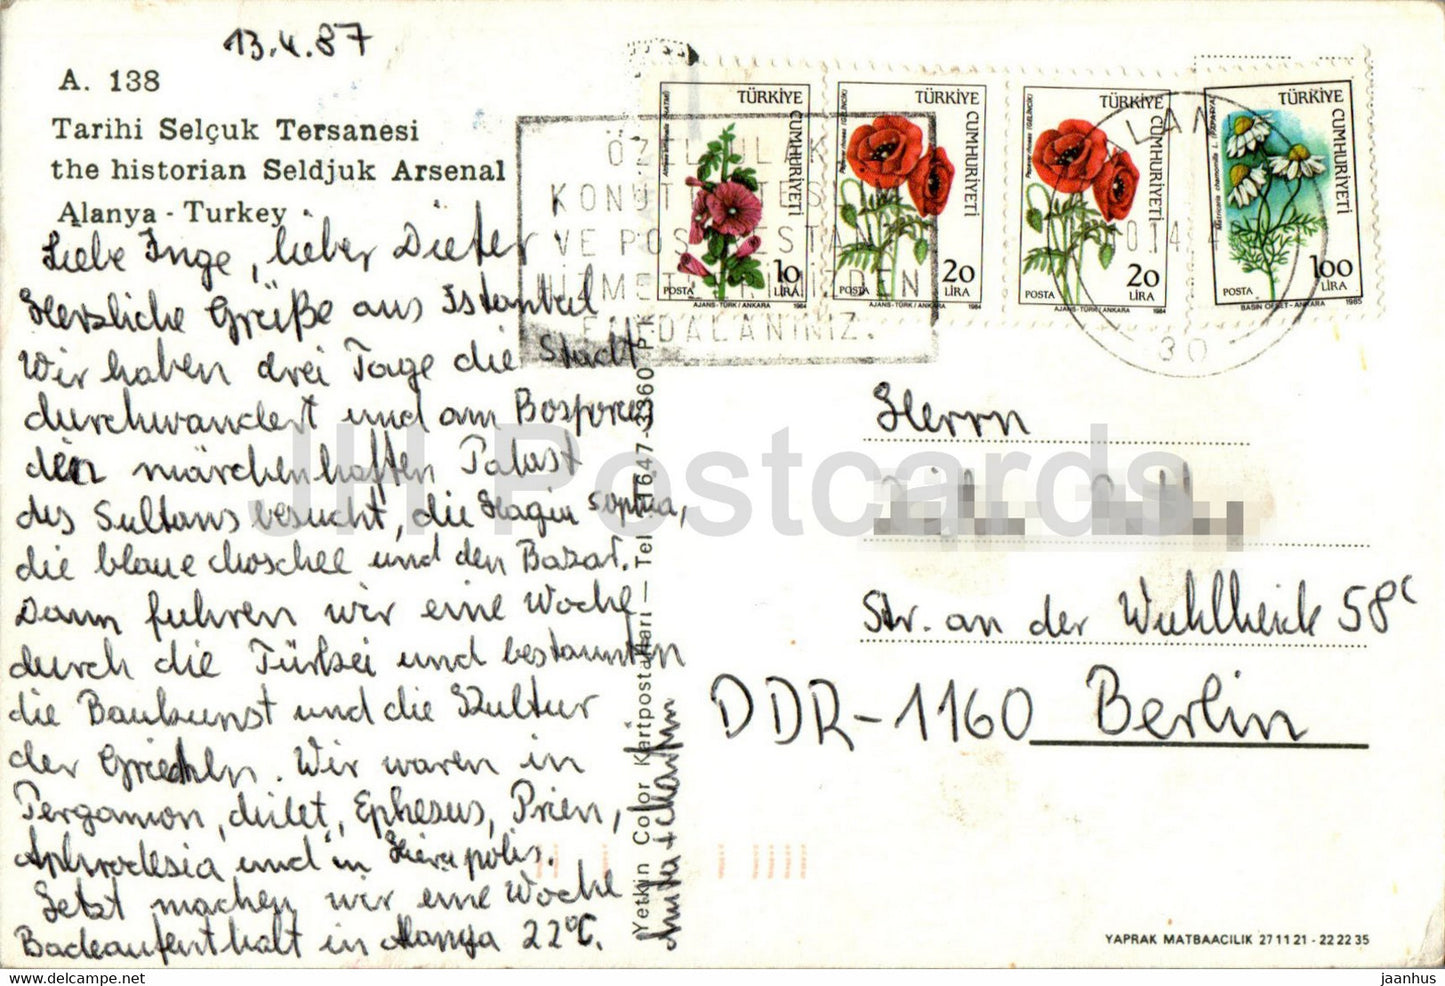 13.4.87
A. 138
Tarihi Selçuk Tersanesi
the historian Seldjuk Arsenal
Alanya - Turkey
Liebe Inge, lieber Dieter
Herzliche Grüße aus Istanbul
Wir haben drei Tage die Stadt
durchwandert und am Bosporus
den märchenhaften Palast
des Sultans besucht, die Hagia Sophia,
die blaue Moschee und den Bazar.
Dann fuhren wir eine Woche
durch die Türkei und bestaunten
die Baukunst und die Kultur
der Griechen. Wir waren in
Pergamon, Milet, Ephesus, Prien,
Aphrodesia und in Hierapolis.
Jetzt machen wir eine Woche
Badeaufenthalt in Alanya 22°C.
Yetkin Color Kartpostalları - Tel : 1647-3360
ÖZEL ULAK
KONUT
VE POS
DALANINIZ.
TÜRKİYE
CUMHURİYETİ
POSTA
10
LİRA
AJANS-TÜRK/ANKARA
1984
TÜRKİYE
CUMHURİYETİ
POSTA
20
LİRA
AJANS-TÜRK/ANKARA
1984
TÜRKİYE
CUMHURİYETİ
POSTA
20
LİRA
AJANS-TÜRK/ANKARA
1984
TÜRKİYE
CUMHURİYETİ
POSTA
100
LİRA
BASIN OFSET-ANKARA
1985
30
Herrn
Str. an der Wuhlheide 58c
DDR-1160 Berlin
YAPRAK MATBAACILIK 27 11 21 - 22 22 35
JH Postcards
jaanhus